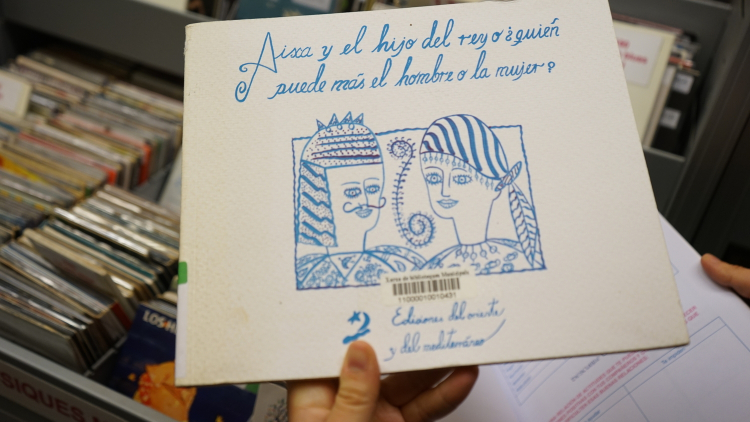 Aixa y el hijo del rey o ¿quién
puede más el hombre o la mujer?
Xarxa de biblioteques Municipals
11000010010431
2
Ediciones del oriente
y del mediterráneo
LOS H
SIQUES